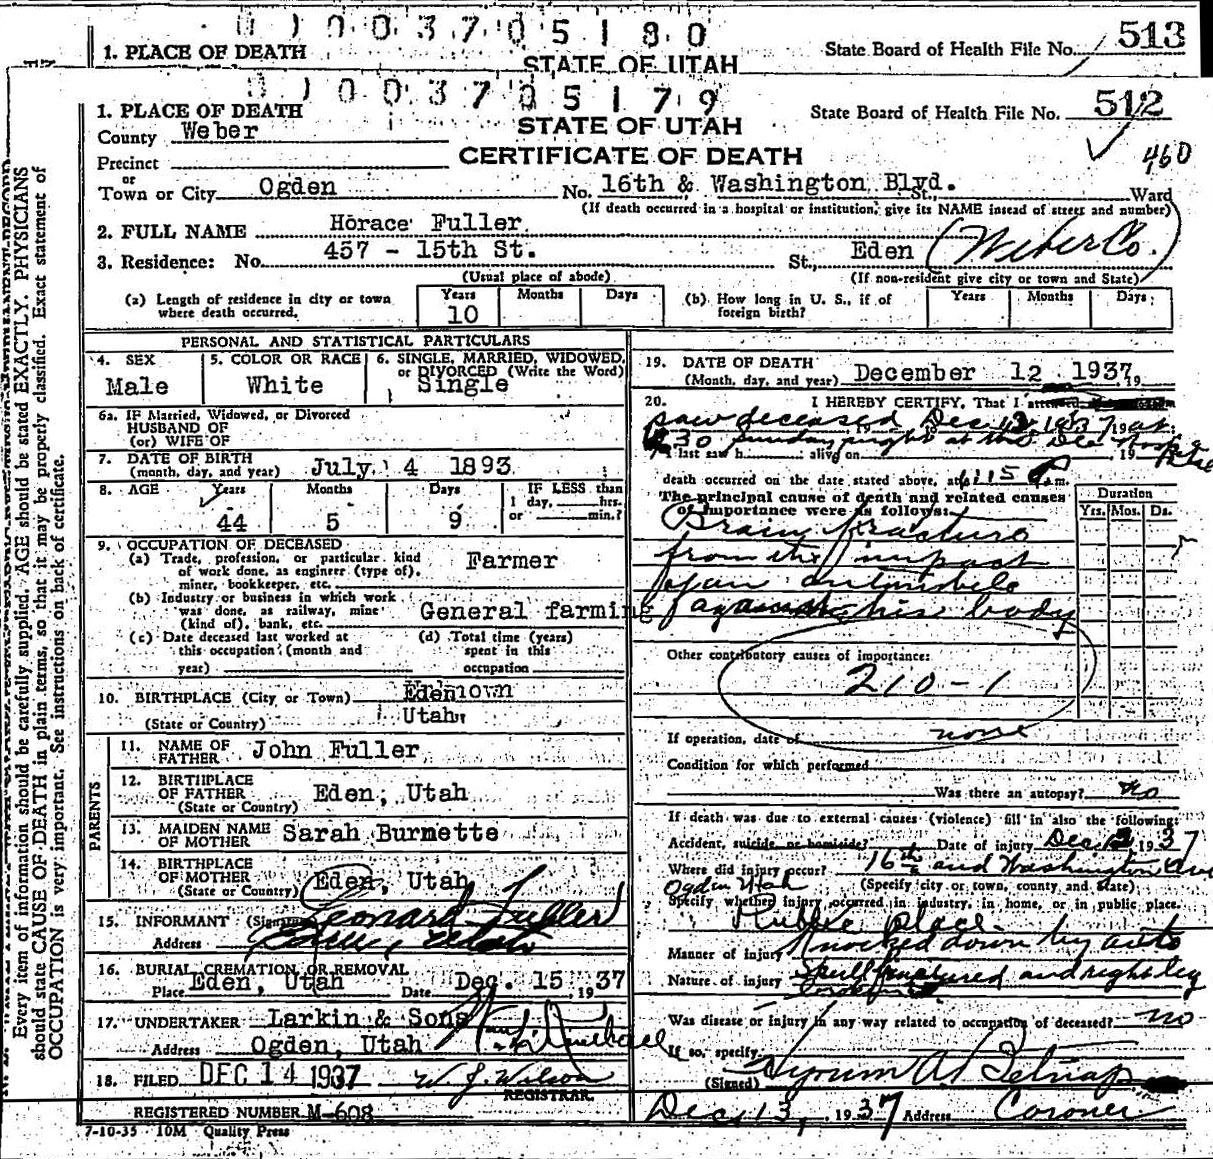 0 1 0 0 3 7 0 5 1 8 0
1. PLACE OF DEATH
STATE OF UTAH
State Board of Health File No. 513
0 1 0 0 3 7 0 5 1 7 9
1. PLACE OF DEATH
STATE OF UTAH
State Board of Health File No. 512
County Weber
CERTIFICATE OF DEATH
460
Precinct
or
Town or City Ogden No. 16th & Washington Blvd. St., Ward
(If death occurred in a hospital or institution, give its NAME insead of street and number)
2. FULL NAME Horace Fuller
3. Residence: No. 457 - 15th St. St., Eden (Weber Co.)
(Usual place of abode) (If non-resident give city or town and State)
(a) Length of residence in city or town where death occurred. Years 10 Months Days
(b) How long in U. S., if of foreign birth? Years Months Days
PERSONAL AND STATISTICAL PARTICULARS
4. SEX Male
5. COLOR OR RACE White
6. SINGLE, MARRIED, WIDOWED, or DIVORCED (Write the Word) Single
6a. IF Married, Widowed, or Divorced
HUSBAND OF
(or) WIFE OF
7. DATE OF BIRTH
(month, day, and year) July 4 1893
8. AGE Years 44 Months 5 Days 9 IF LESS than 1 day, hrs. or min.?
9. OCCUPATION OF DECEASED
(a) Trade, profession, or particular kind
of work done, as engineer (type of),
miner, bookkeeper, etc. Farmer
(b) Industry or business in which work
was done, as railway, mine
(kind of), bank, etc. General farming
(c) Date deceased last worked at
this occupation (month and
year)
(d) Total time (years)
spent in this
occupation
10. BIRTHPLACE (City or Town) Eden
(State or Country) Utah
PARENTS
11. NAME OF FATHER John Fuller
12. BIRTHPLACE OF FATHER
(State or Country) Eden, Utah
13. MAIDEN NAME OF MOTHER Sarah Burnette
14. BIRTHPLACE OF MOTHER
(State or Country) Eden, Utah
15. INFORMANT (Signature) Leonard Fuller
Address
16. BURIAL, CREMATION, OR REMOVAL
Place Eden, Utah Date Dec. 15 1937
17. UNDERTAKER Larkin & Sons
Address Ogden, Utah
18. FILED DEC 14 1937 W. J. Wilson
REGISTRAR.
REGISTERED NUMBER M-608
7-10-35 10M Quality Press
19. DATE OF DEATH
(Month, day, and year) December 12 1937 19
20. I HEREBY CERTIFY, That I
saw deceased Dec. 1937 19 at
30 Sunday night at the Dee
last saw h alive on 19
death occurred on the date stated above, at 6:15 P m.
The principal cause of death and related causes
of importance were as follows:
Duration
Yrs. Mos. Ds.
Brain fracture
from the impact
of an automobile
against his body
Other contributory causes of importance:
210-1
If operation, date of none
Condition for which performed
Was there an autopsy? no
If death was due to external causes (violence) fill in also the following:
Accident, suicide or homicide? Date of injury Dec. 1937
Where did injury occur? 16th and Washington Ave
Ogden Utah (Specify city or town, county and state)
Specify whether injury occurred in industry, in home, or in public place.
Public place
Manner of injury Knocked down by auto
Nature of injury Skull fractured and right leg
Was disease or injury in any way related to occupation of deceased? no
If so, specify
(Signed) Hyrum A. Belnap
Dec. 13, 1937 Address Coroner
Every item of information should be carefully supplied. AGE should be stated EXACTLY. PHYSICIANS
should state CAUSE OF DEATH in plain terms, so that it may be properly classified. Exact statement of
OCCUPATION is very important. See instructions on back of certificate.